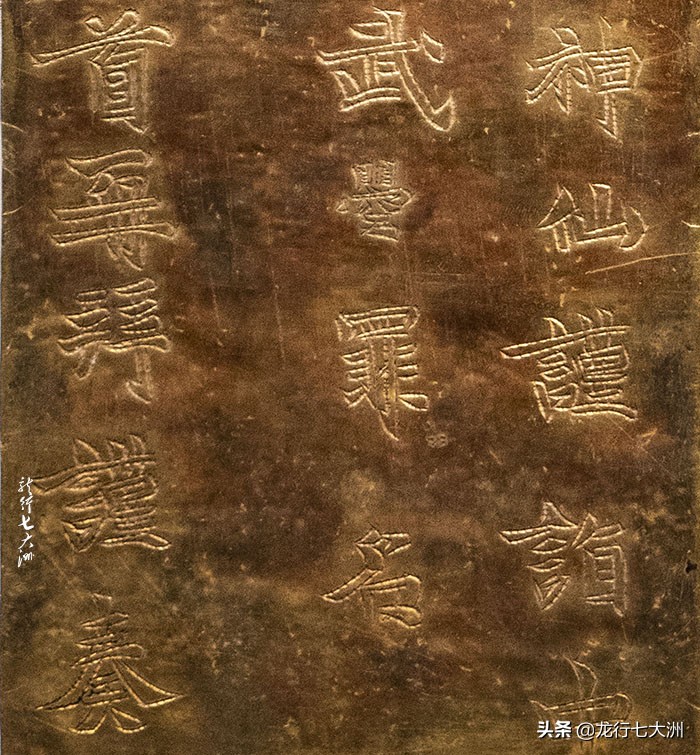 神仙謹詣
武曌罪名
首再拜謹奏
龙行七大洲
头条 @龙行七大洲